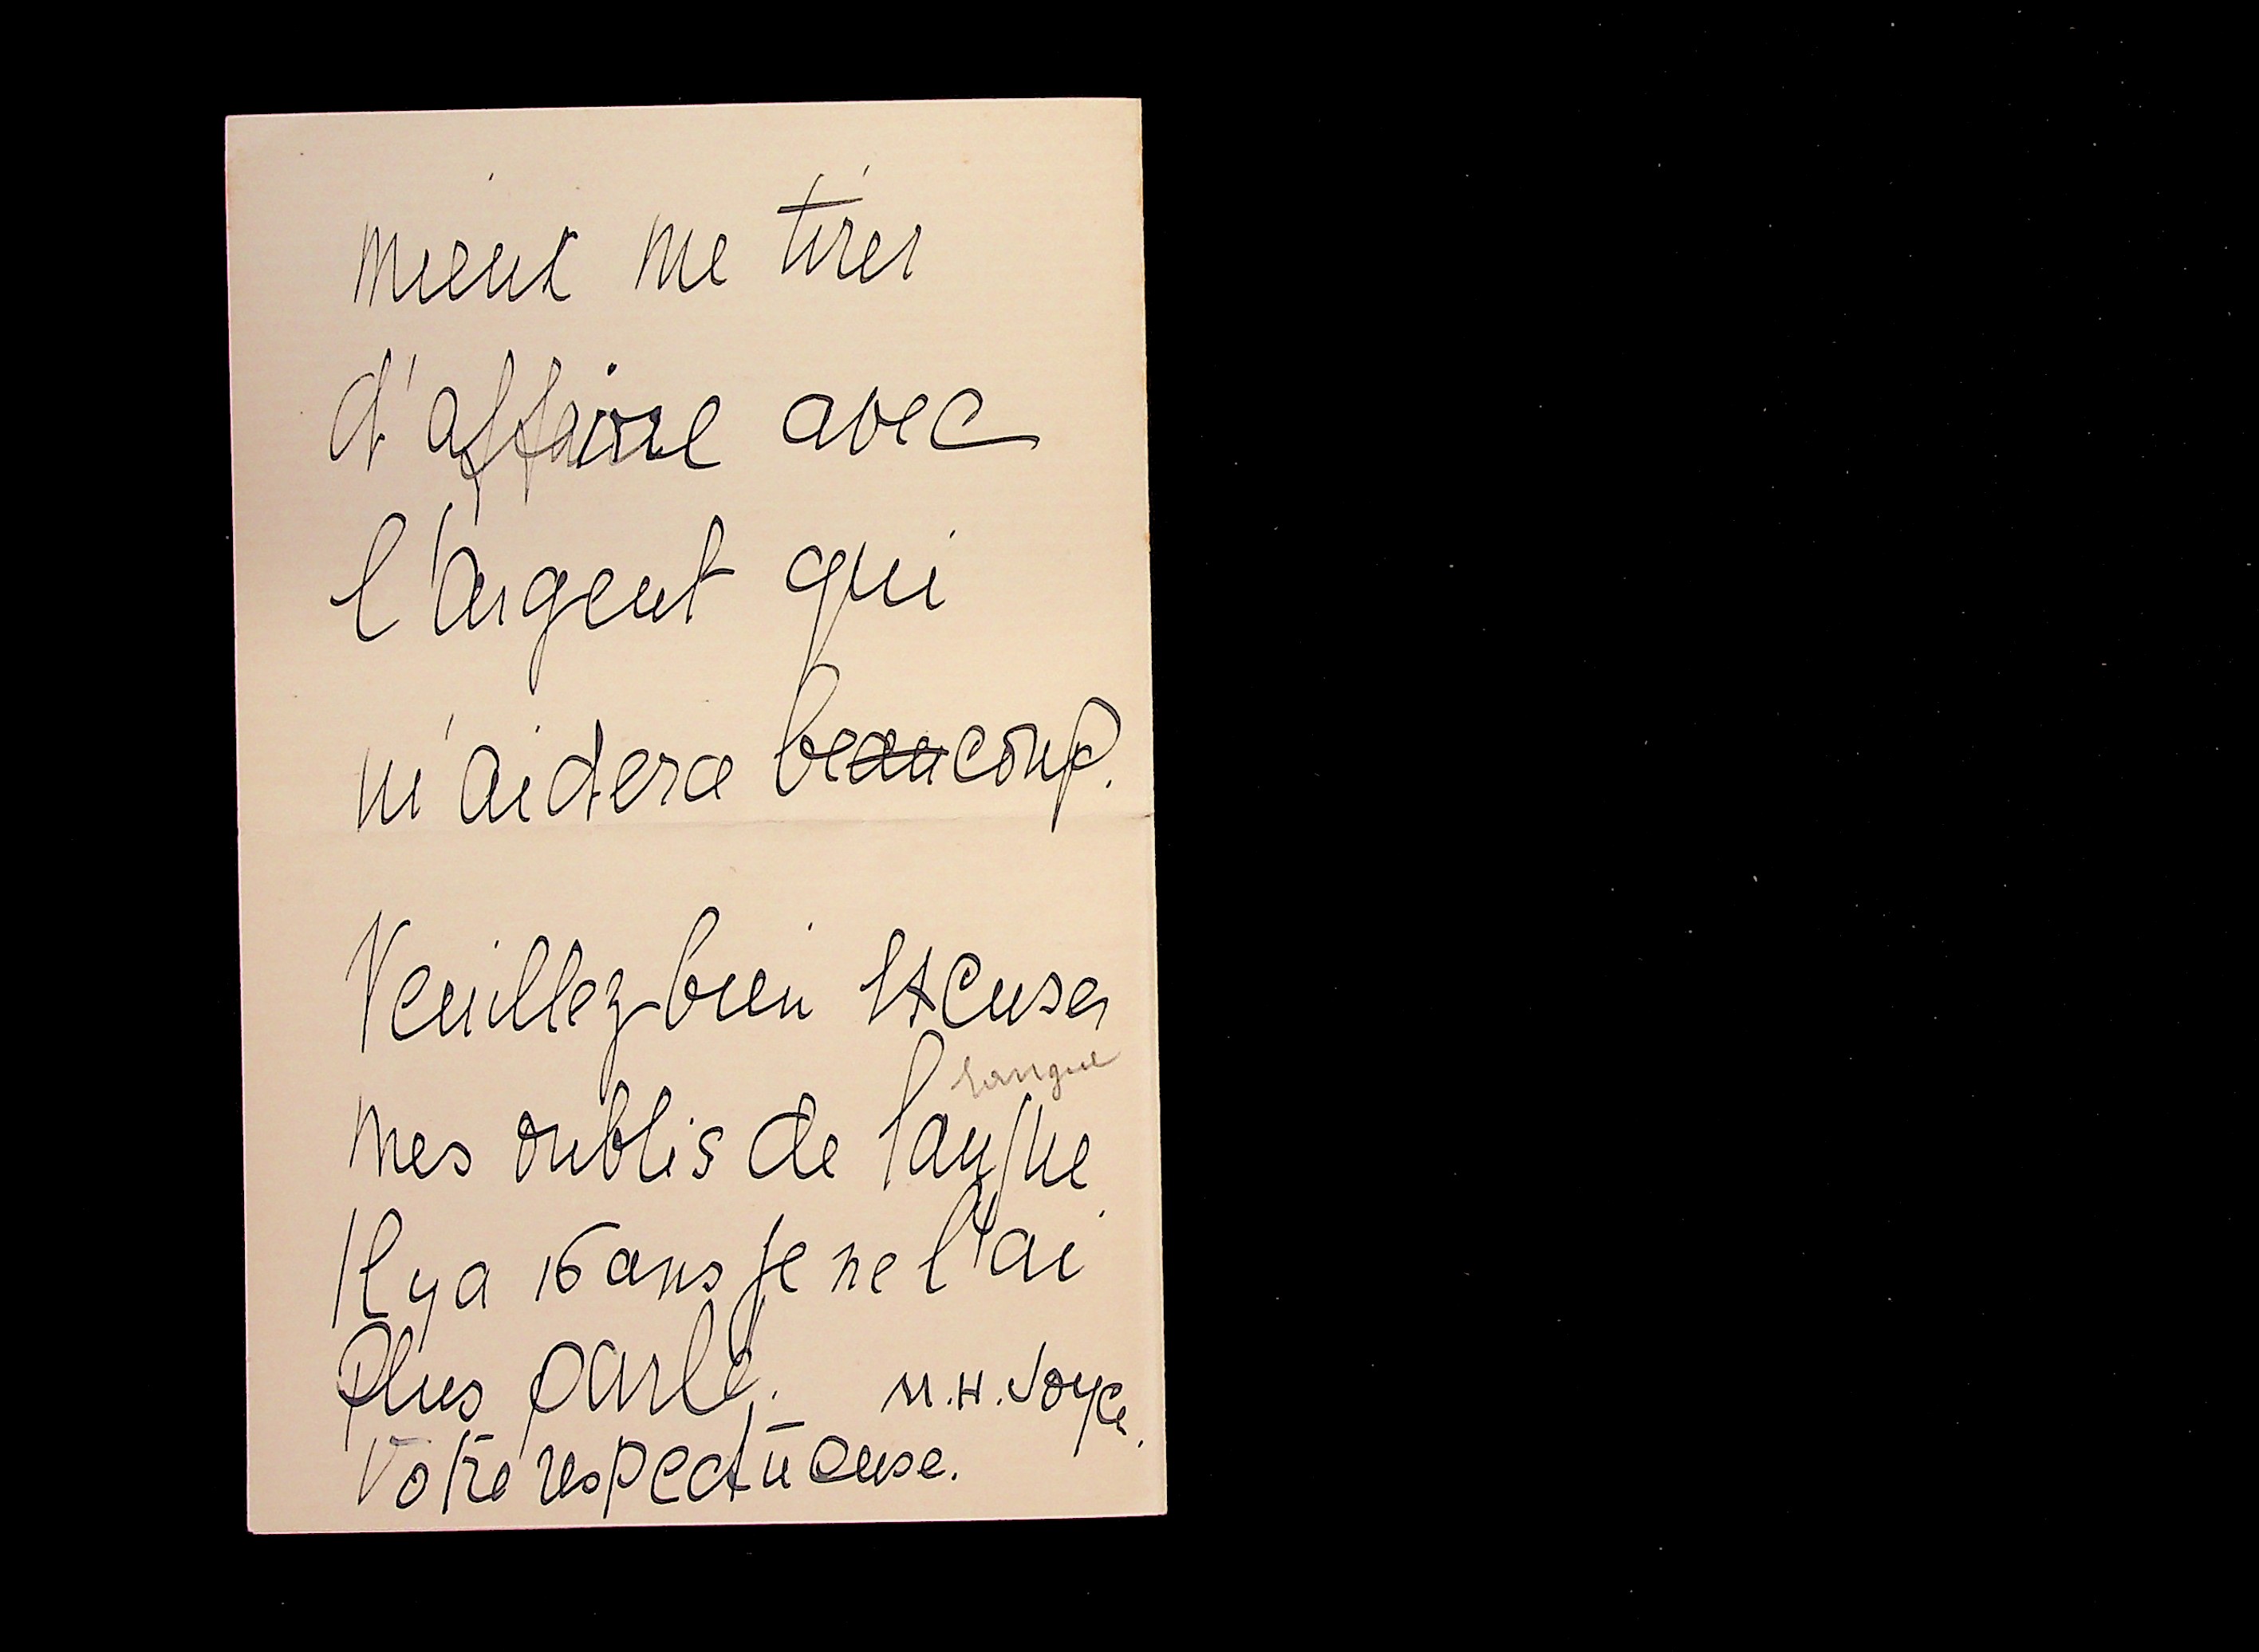 mieux me tirer
d'affaire avec
l'argent qui
m'aidera beaucoup.
Veuillez bien excuser
langue
mes oublis de langue.
Il y a 16 ans je ne l'ai
plus parlé. M.H. Joyce.
Votre respectueuse.